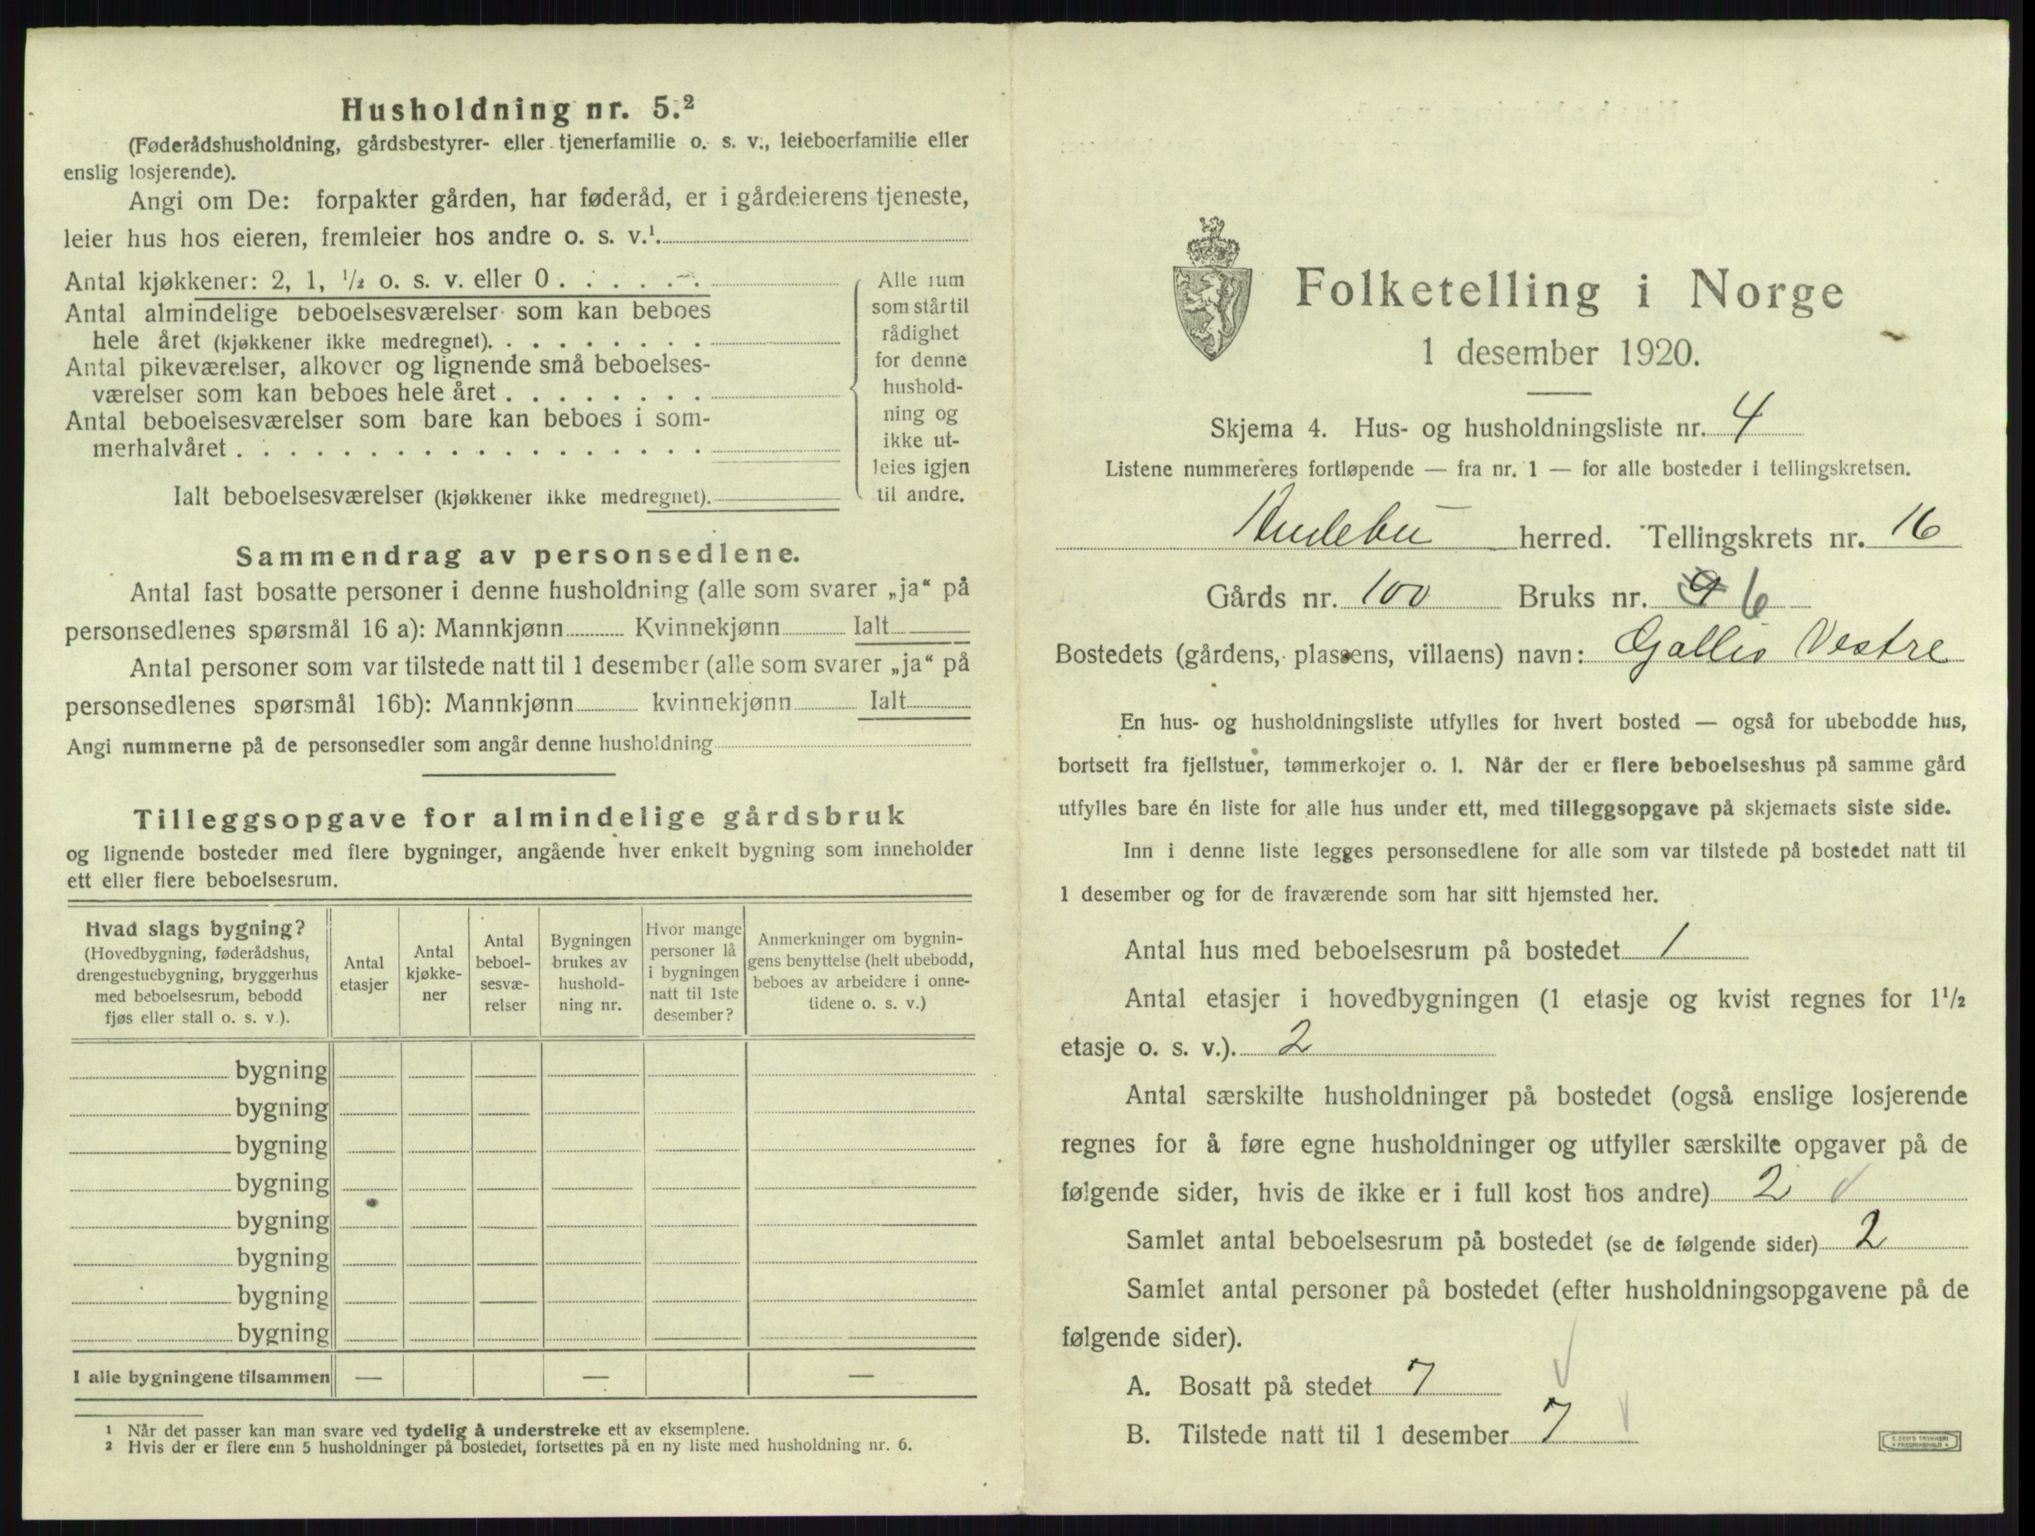 Husholdning nr. 5.²
(Føderådshusholdning, gårdsbestyrer- eller tjenerfamilie o. s. v., leieboerfamilie eller
enslig losjerende).
Angi om De: forpakter gården, har føderåd, er i gårdeierens tjeneste,
leier hus hos eieren, fremleier hos andre o. s. v.¹.
Antal kjøkkener: 2, 1, ½ o. s. v. eller 0
Antal almindelige beboelsesværelser som kan beboes
hele året (kjøkkener ikke medregnet).
Antal pikeværelser, alkover og lignende små beboelses-
værelser som kan beboes hele året
Antal beboelsesværelser som bare kan beboes i som-
merhalvåret
Ialt beboelsesværelser (kjøkkener ikke medregnet).
Alle rum
som står til
rådighet
for denne
hushold-
ning og
ikke ut-
leies igjen
til andre.
Sammendrag av personsedlene.
Antal fast bosatte personer i denne husholdning (alle som svarer „ja“ på
personsedlenes spørsmål 16 a): Mannkjønn Kvinnekjønn Ialt
Antal personer som var tilstede natt til 1 desember (alle som svarer „ja“ på
personsedlenes spørsmål 16b): Mannkjønn kvinnekjønn Ialt
Angi nummerne på de personsedler som angår denne husholdning
Tilleggsopgave for almindelige gårdsbruk
og lignende bosteder med flere bygninger, angående hver enkelt bygning som inneholder
ett eller flere beboelsesrum.
Hvad slags bygning?
(Hovedbygning, føderådshus,
drengestuebygning, bryggerhus
med beboelsesrum, bebodd
fjøs eller stall o. s. v.).
Antal
etasjer
Antal
kjøkke-
ner
Antal
beboel-
sesvæ-
relser
Bygningen
brukes av
hushold-
ning nr.
Hvor mange
personer lå
i bygningen
natt til 1ste
desember?
Anmerkninger om bygnin-
gens benyttelse (helt ubebodd,
beboes av arbeidere i onne-
tidene o. s. v.)
bygning
bygning
bygning
bygning
bygning
bygning
bygning
bygning
I alle bygningene tilsammen — — —
¹ Når det passer kan man svare ved tydelig å understreke ett av eksemplene.
² Hvis der er flere enn 5 husholdninger på bostedet, fortsettes på en ny liste med husholdning nr. 6.
Folketelling i Norge
1 desember 1920.
Skjema 4. Hus- og husholdningsliste nr. 4
Listene nummereres fortløpende — fra nr. 1 — for alle bosteder i tellingskretsen.
Andebu herred. Tellingskrets nr. 16
Gårds nr. 100 Bruks nr. 9 6
Bostedets (gårdens, plassens, villaens) navn: Gallis Vestre
En hus- og husholdningsliste utfylles for hvert bosted — også for ubebodde hus,
bortsett fra fjellstuer, tømmerkojer o. l. Når der er flere beboelseshus på samme gård
utfylles bare én liste for alle hus under ett, med tilleggsopgave på skjemaets siste side.
Inn i denne liste legges personsedlene for alle som var tilstede på bostedet natt til
1 desember og for de fraværende som har sitt hjemsted her.
Antal hus med beboelsesrum på bostedet 1
Antal etasjer i hovedbygningen (1 etasje og kvist regnes for 1½
etasje o. s. v.). 2
Antal særskilte husholdninger på bostedet (også enslige losjerende
regnes for å føre egne husholdninger og utfyller særskilte opgaver på de
følgende sider, hvis de ikke er i full kost hos andre) 2
Samlet antal beboelsesrum på bostedet (se de følgende sider) 2
Samlet antal personer på bostedet (efter husholdningsopgavene på de
følgende sider).
A. Bosatt på stedet 7
B. Tilstede natt til 1 desember 7